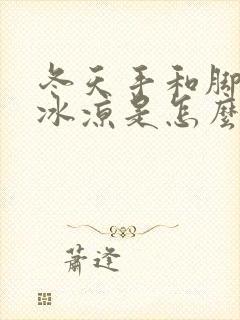 冬天手和脚
冰凉是怎麼
蕭逢